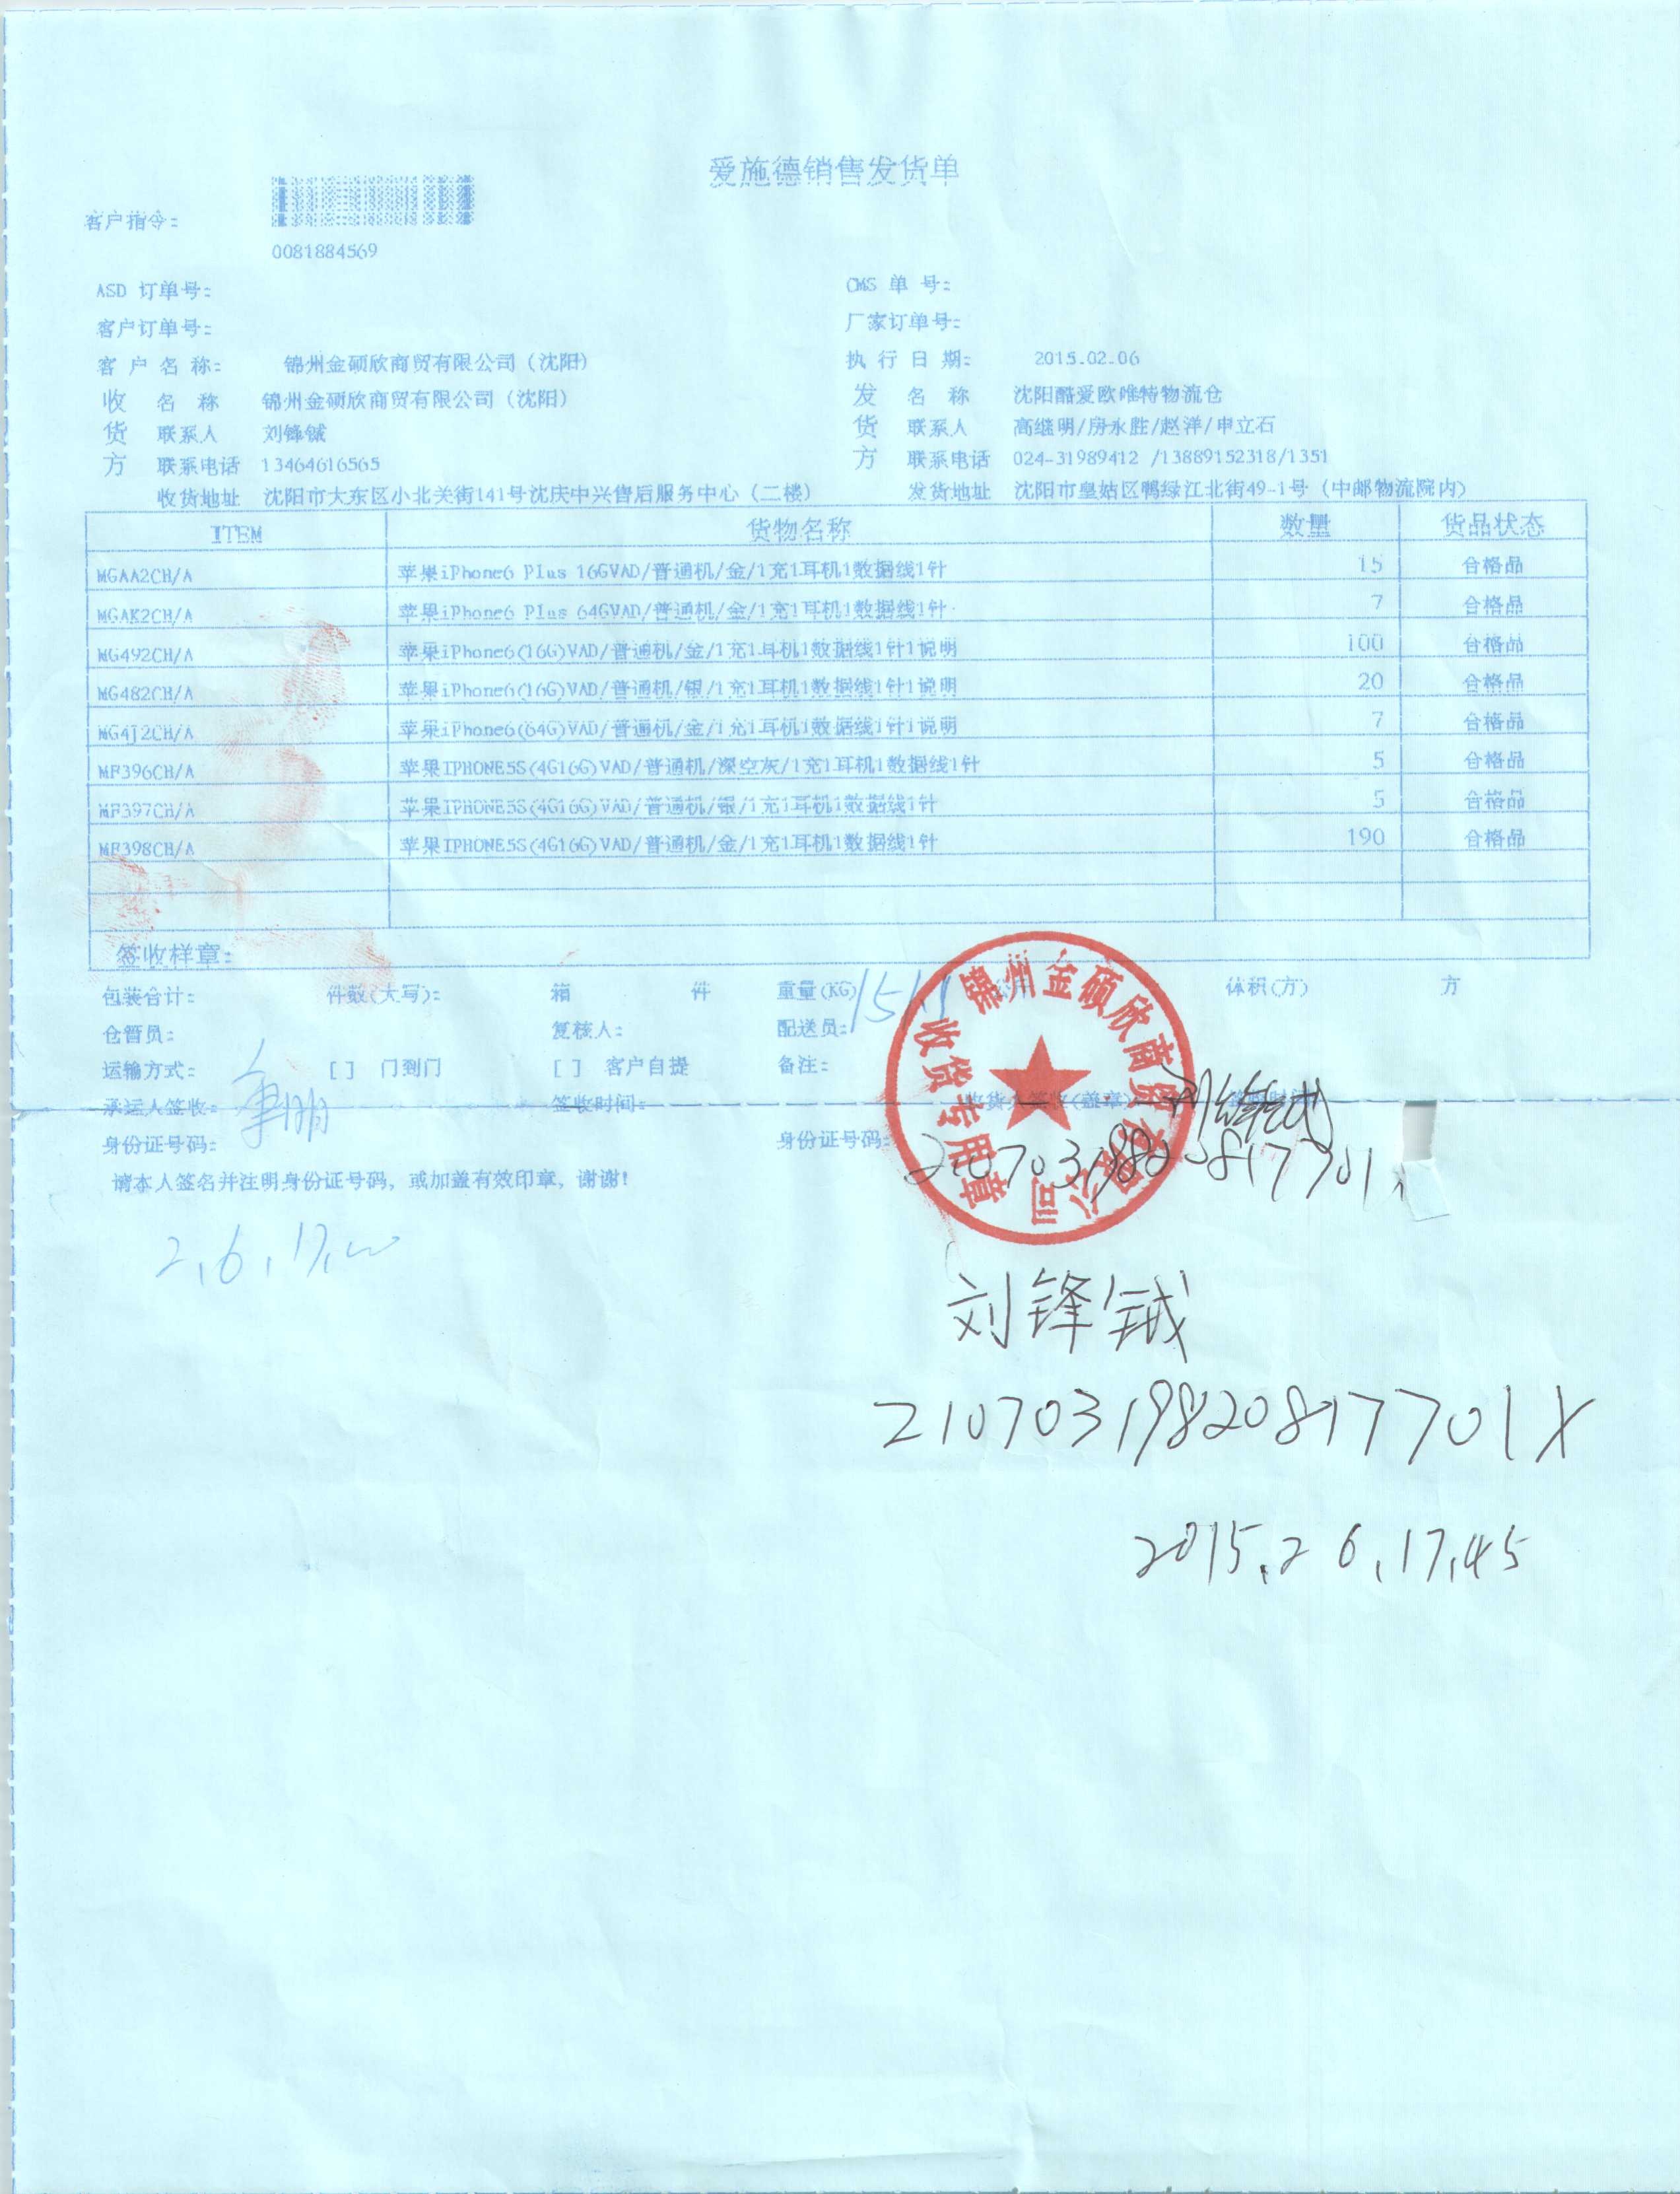 爱施德销售发货单
客户指令:
0081884569
ASD 订单号:
CMS 单 号:
客户订单号:
厂家订单号:
客 户 名 称: 锦州金硕欣商贸有限公司(沈阳)
执 行 日 期: 2015.02.06
收货方
名 称 锦州金硕欣商贸有限公司(沈阳)
联系人 刘锋铖
联系电话 13464616565
收货地址 沈阳市大东区小北关街141号沈庆中兴售后服务中心(二楼)
发货方
名 称 沈阳酷爱欧唯特物流仓
联系人 高继明/房永胜/赵洋/申立石
联系电话 024-31989412 /13889152318/1351
发货地址 沈阳市皇姑区鸭绿江北街49-1号(中邮物流院内)
ITEM 货物名称 数量 货品状态
MGAA2CH/A 苹果iPhone6 Plus 16GVAD/普通机/金/1充1耳机1数据线1针 15 合格品
MGAK2CH/A 苹果iPhone6 Plus 64GVAD/普通机/金/1充1耳机1数据线1针 7 合格品
MG492CH/A 苹果iPhone6(16G)VAD/普通机/金/1充1耳机1数据线1针1说明 100 合格品
MG482CH/A 苹果iPhone6(16G)VAD/普通机/银/1充1耳机1数据线1针1说明 20 合格品
MG4J2CH/A 苹果iPhone6(64G)VAD/普通机/金/1充1耳机1数据线1针1说明 7 合格品
MF396CH/A 苹果IPHONE5S(4G16G)VAD/普通机/深空灰/1充1耳机1数据线1针 5 合格品
MF397CH/A 苹果IPHONE5S(4G16G)VAD/普通机/银/1充1耳机1数据线1针 5 合格品
MF398CH/A 苹果IPHONE5S(4G16G)VAD/普通机/金/1充1耳机1数据线1针 190 合格品
签收样章:
包装合计: 件数(大写): 箱 件 重量(KG) 体积(方) 方
仓管员: 复核人: 配送员:
运输方式: [ ] 门到门 [ ] 客户自提 备注:
承运人签收: 签收时间: 收货人签收(盖章) 刘锋铖
身份证号码: 身份证号码:
请本人签名并注明身份证号码，或加盖有效印章，谢谢!
锦州金硕欣商贸有限公司
收货专用章
2,6,17,00
刘锋铖
21070319820817701X
2015.2 6,17,45